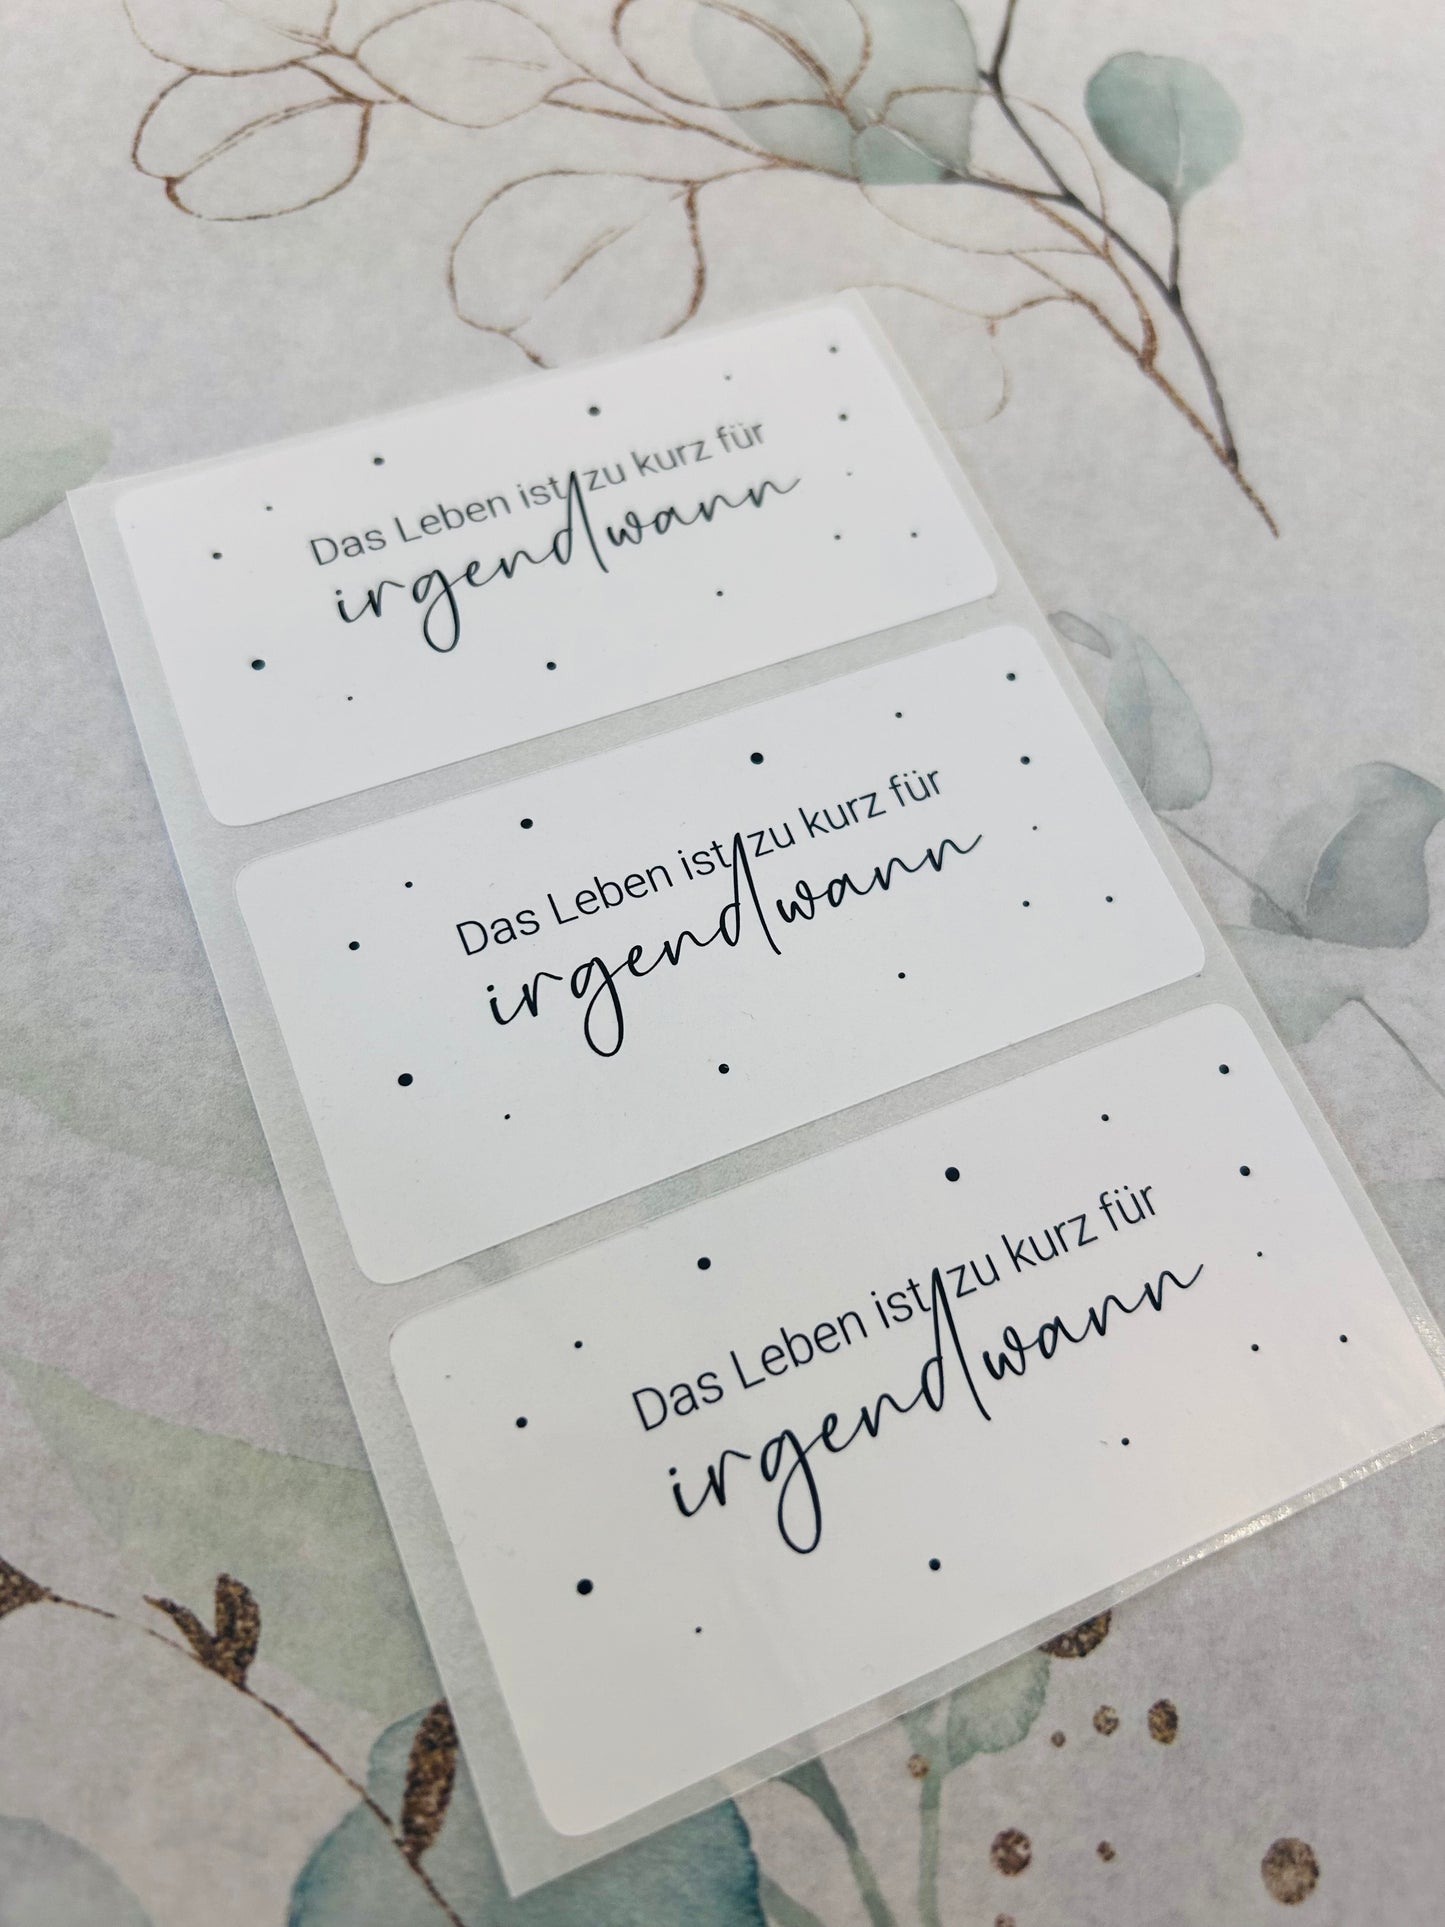 Das Leben ist zu kurz für
irgendwann
Das Leben ist zu kurz für
irgendwann
Das Leben ist zu kurz für
irgendwann